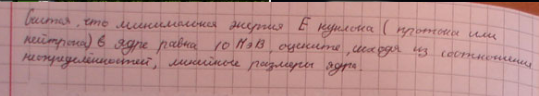 Считая, что минимальная энергия E нуклона (протона или
нейтрона) в ядре равна 10 МэВ, оцените, исходя из соотношения
неопределённостей, линейные размеры ядра.